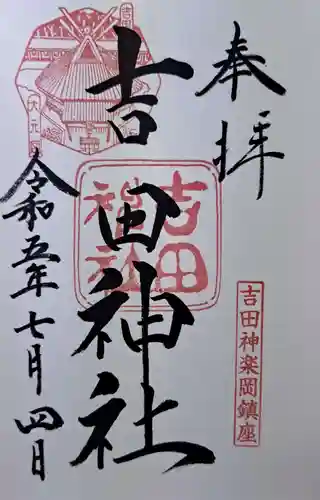 奉拝
吉田神楽岡鎮座
吉田神社
吉田
神社
令和五年七月四日